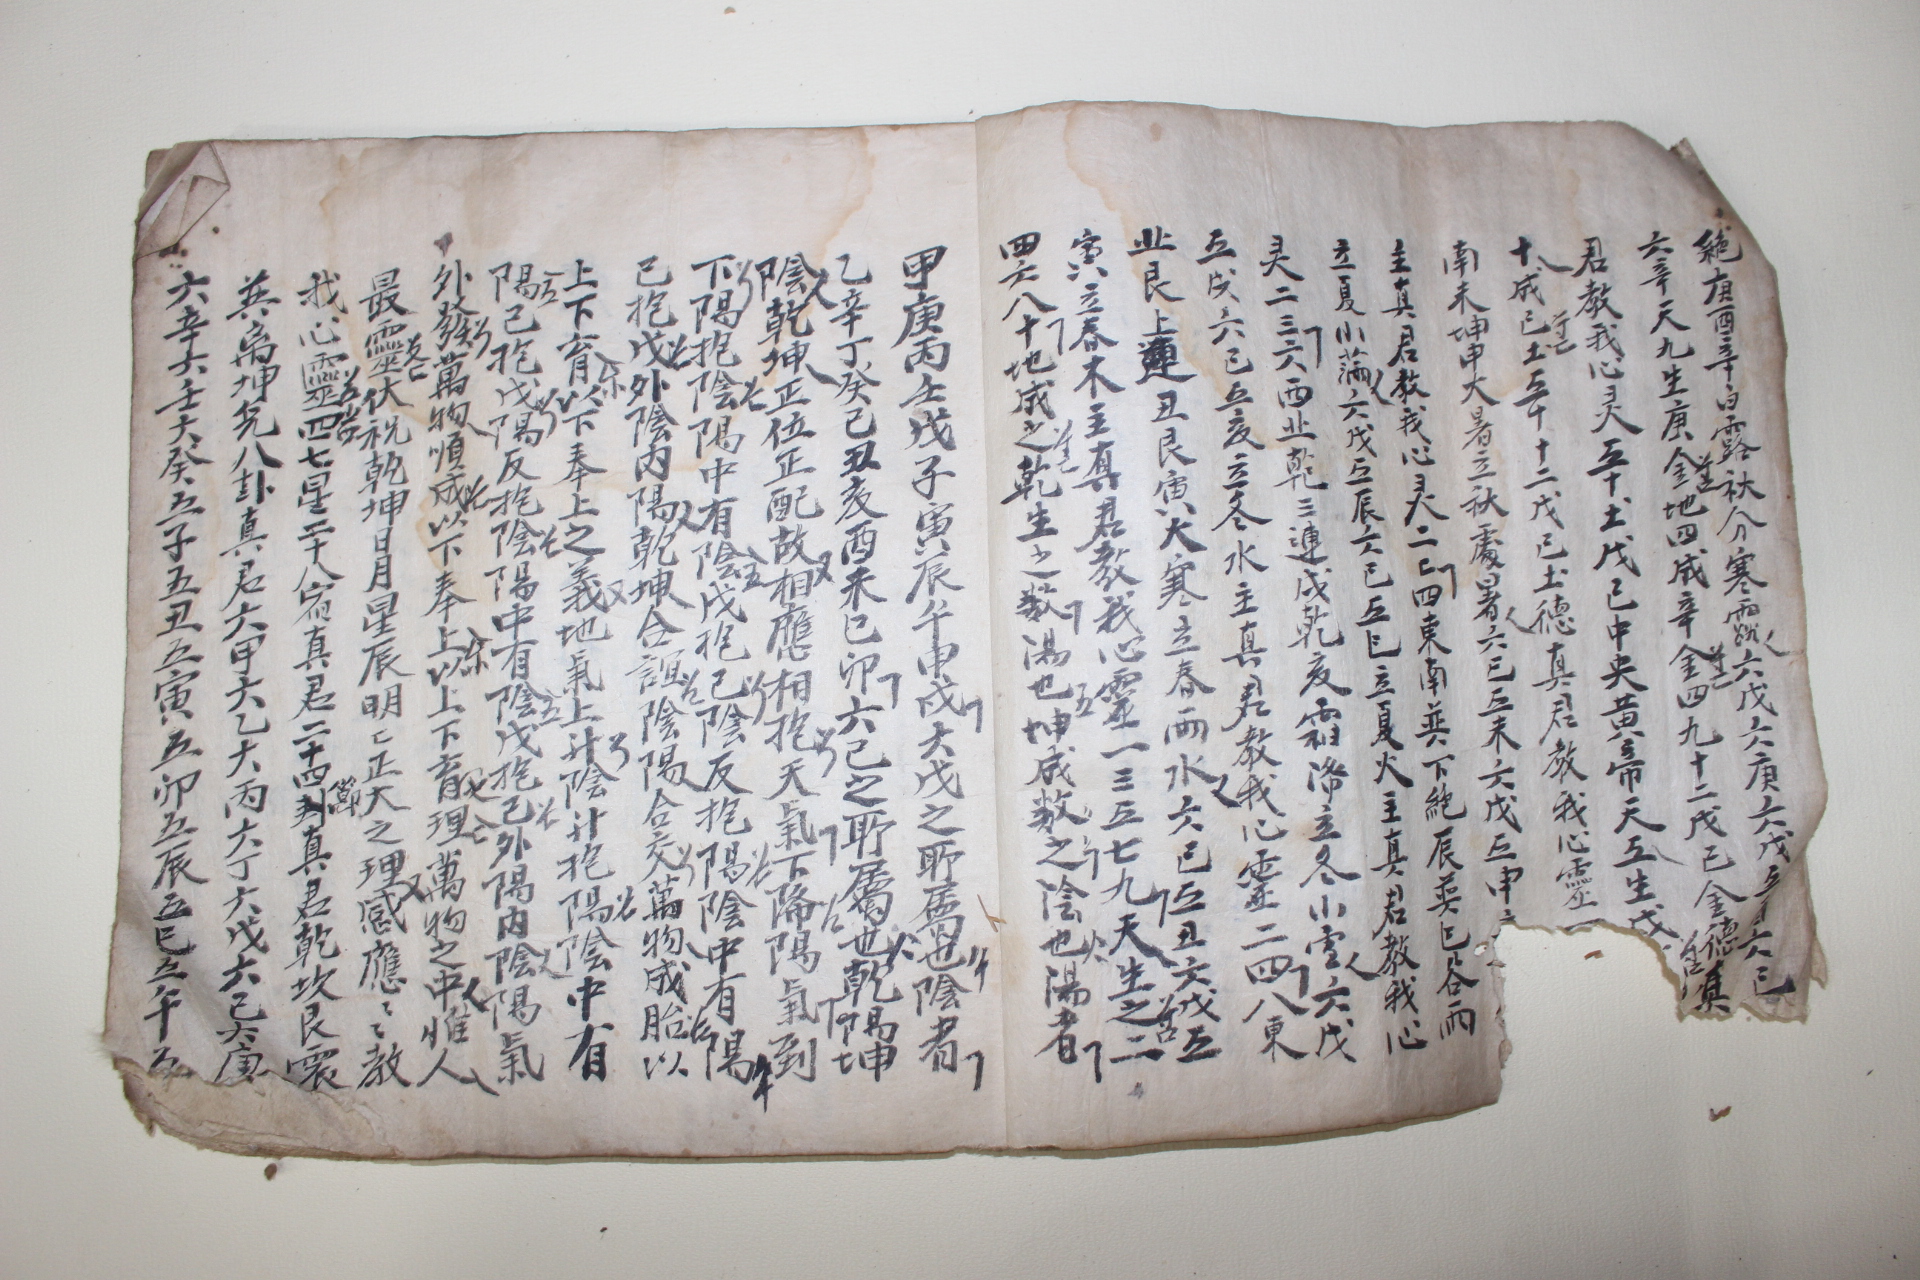 絶庚酉辛白露秋分寒露六戊六庚六戊五酉六己
六辛天九生庚金地四成辛金四九十二戊己金德真
君教我心灵五十土戊己中央黃帝天五生戊
十成己土五十十二戊己土德真君教我心靈一
南未坤申大暑立秋處暑六己五未六戊五申
主真君教我心灵二二四東南巽下絶辰巽巳谷雨
立夏小滿六戊五辰六己五巳立夏火主真君教我心
灵二三六西北乾三連戌乾亥霜降立冬小雪六戊
五戌六己五亥立冬水主真君教我心靈二四八東
北艮上連丑艮寅大寒立春雨水六己五丑六戊五
寅立春木主真君教我心靈一三五七九天生之二
四六八十地成之乾生之數湯也坤成数之陰也陽者
甲庚丙壬戊子寅辰午申戌大戊之所屬也陰者
乙辛丁癸己丑亥酉未巳卯六己之所屬也乾陽坤
陰乾坤正位正配故相應相抱天氣下降陽氣到
下陽抱陰陽中有陰戊抱己陰反抱陽陰中有陽
己抱戊外陰內陽乾坤合誼陰陽合交萬物成胎以
上下育以下奉上之義地氣上升陰升抱陽陰中有
陽己抱戊陽反抱陰陽中有陰戊抱己外陽內陰陽氣
外發萬物順成以下奉上以上下育理萬物之中惟人
最靈伏祝乾坤日月星辰明明正大之理感應應教
我心靈四七星二十八宿真君二十四節真君乾坎艮震
巽离坤兌八卦真君六甲大乙大丙大丁六戊六己六庚
六辛六壬六癸五子五丑五寅五卯五辰五巳五午五